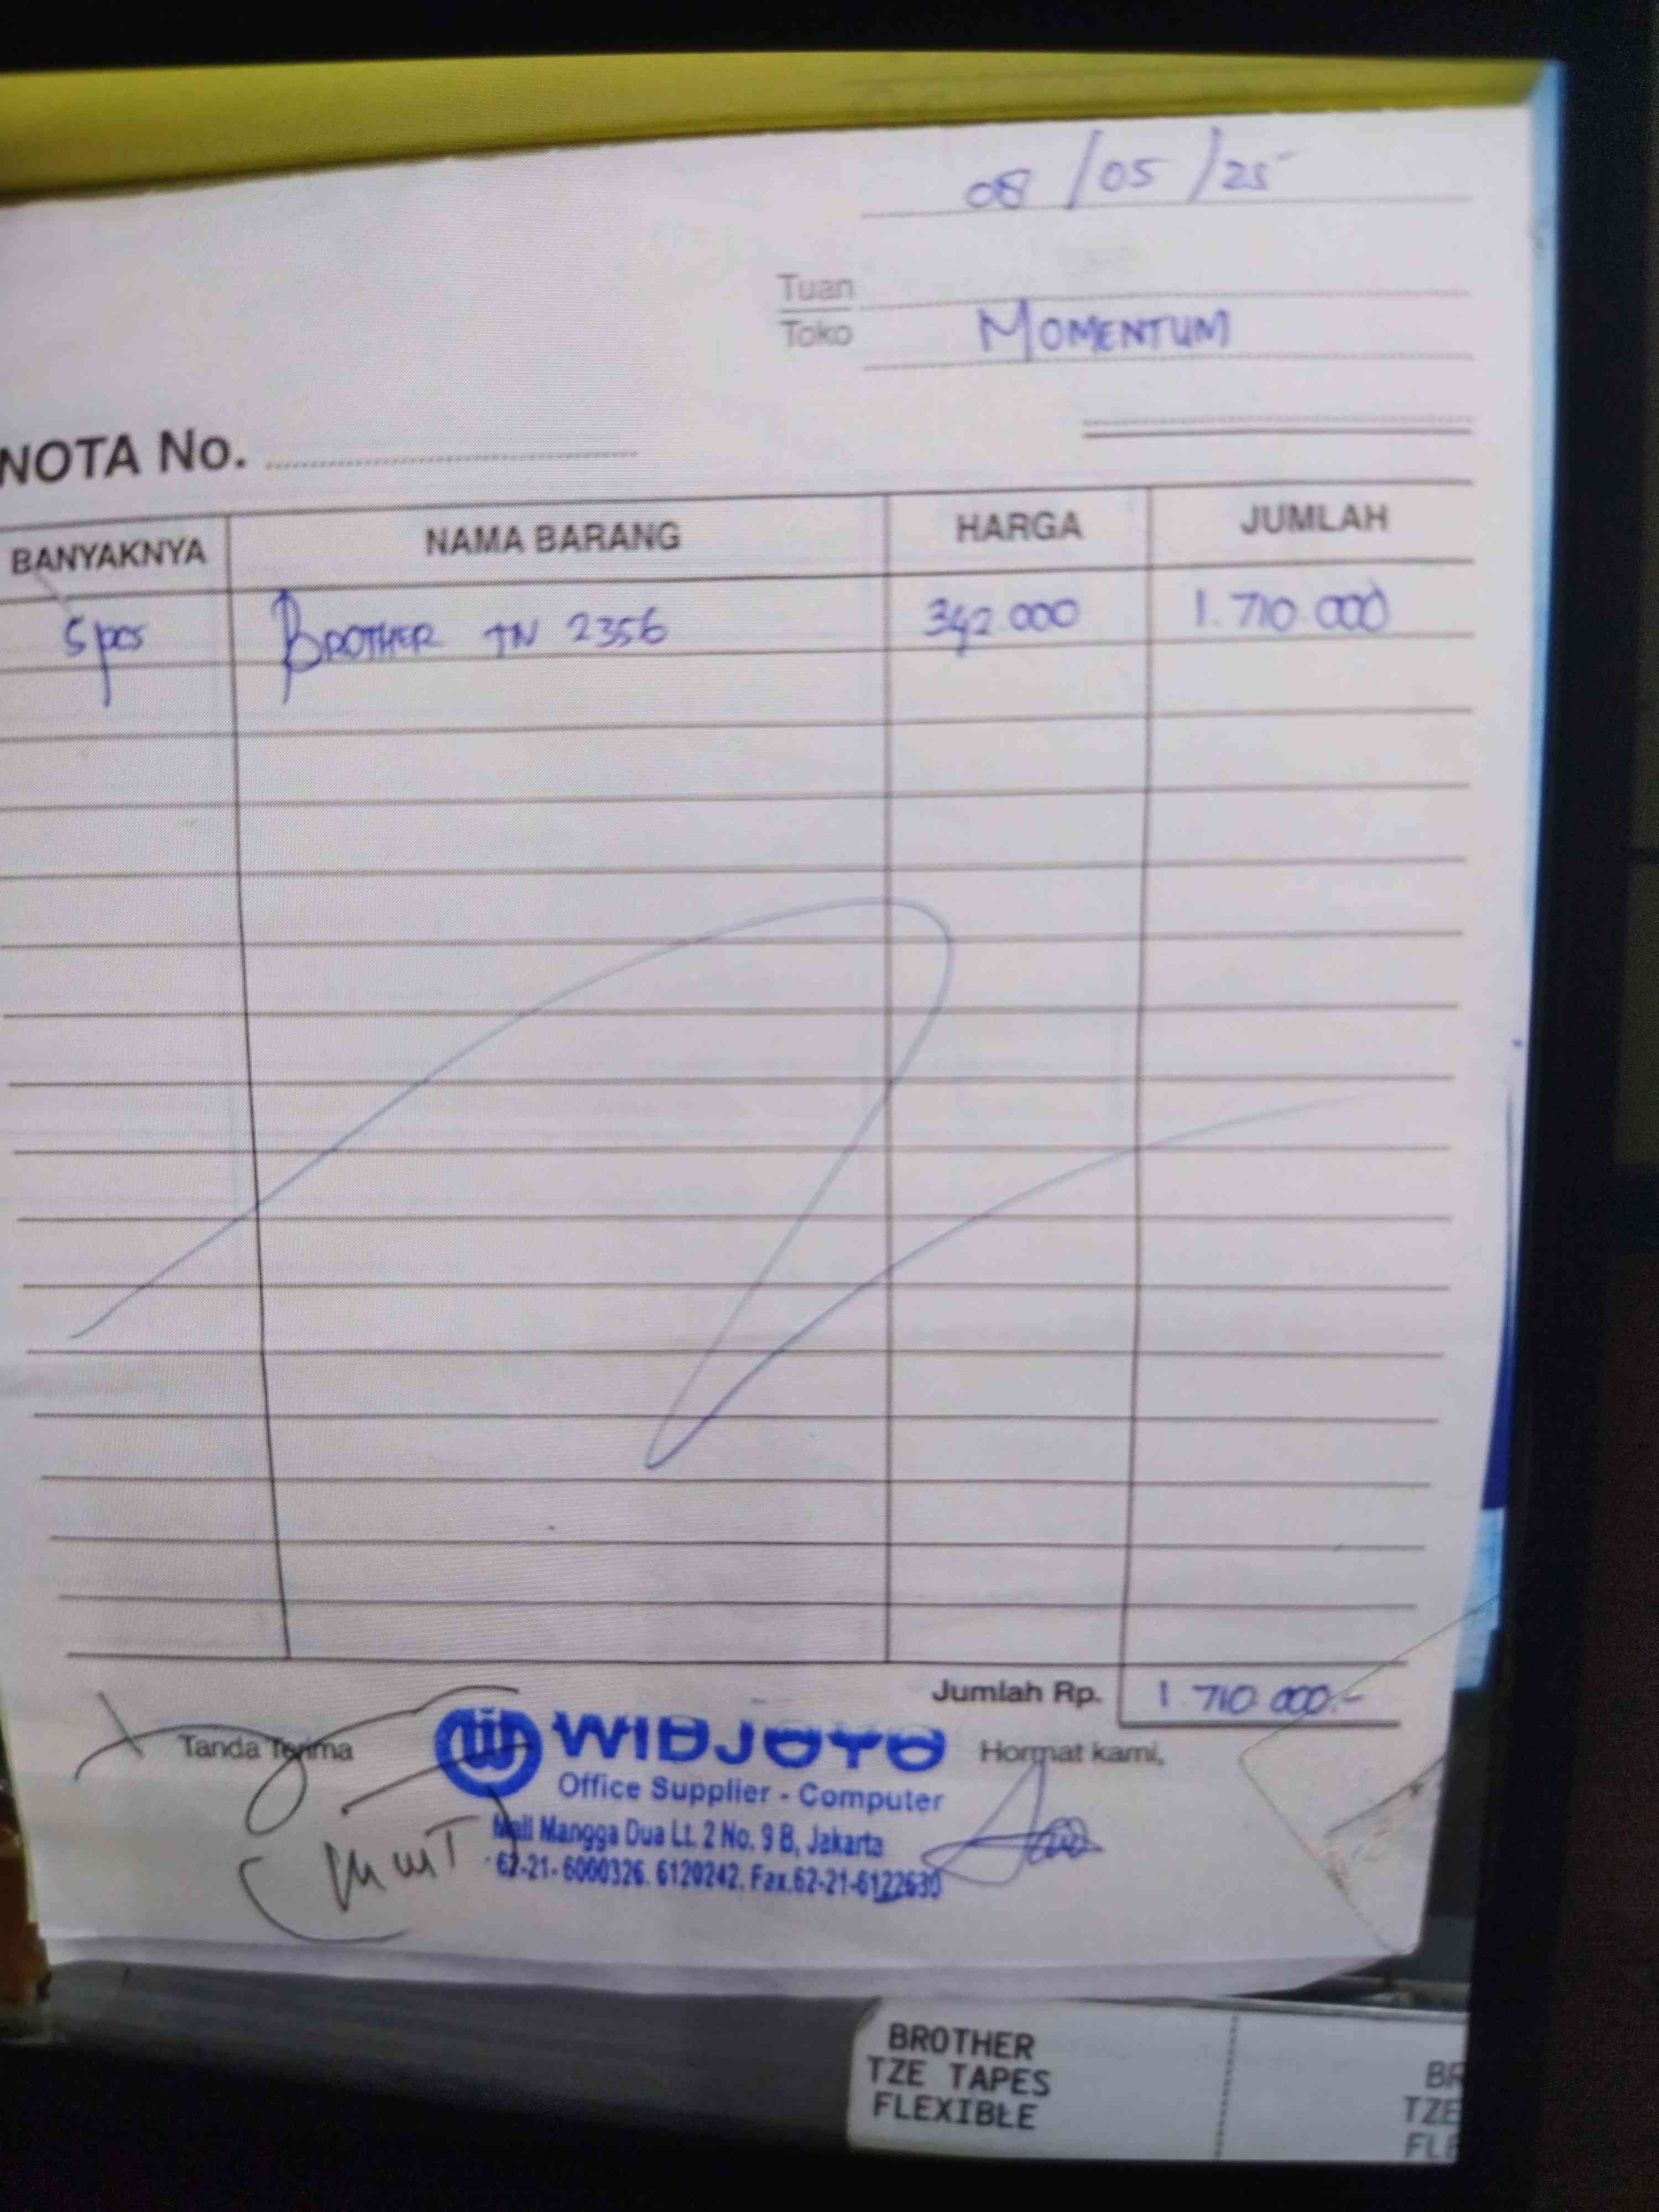 08/05/25
Tuan
Toko
MOMENTUM
NOTA No.
BANYAKNYA NAMA BARANG HARGA JUMLAH
5 pcs BROTHER TN 2356 342.000 1.710.000
Jumlah Rp. 1.710.000.-
Tanda Terima WIDJOYO Hormat kami,
Office Supplier - Computer
Mall Mangga Dua Lt. 2 No. 9 B, Jakarta
62-21- 6000326. 6120242. Fax.62-21-6122630
BROTHER
TZE TAPES
FLEXIBLE
BR
TZE
FLE